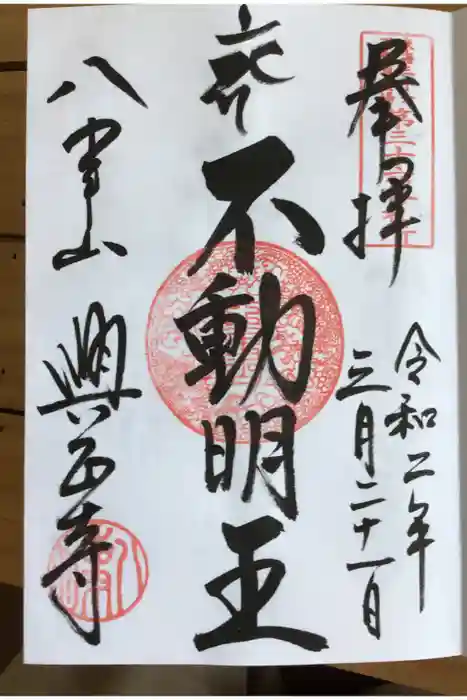 奉拝
令和二年
三月二十一日
不動明王
八事山
興正寺